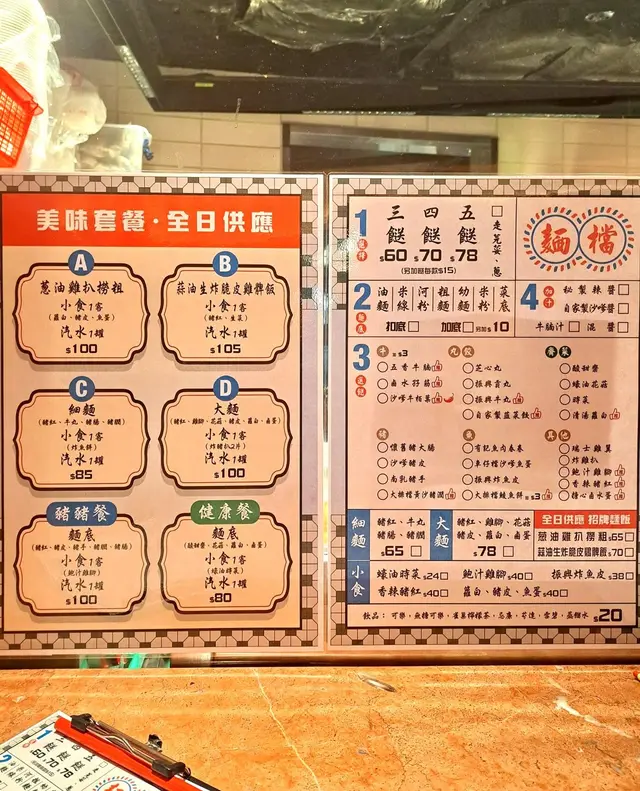 美味套餐·全日供應
A
蔥油雞扒撈粗
小食1客
(蘿白、豬皮、魚蛋)
汽水1罐
$100
B
蒜油生炸脆皮雞髀飯
小食1客
(豬紅、生菜)
汽水1罐
$105
C
細麵
(豬紅、牛丸、豬腸、豬膶)
小食1客
(炸魚餅)
汽水1罐
$85
D
大麵
(豬紅、雞腳、花菇、豬皮、蘿白、鹵蛋)
小食1客
(炸豬扒2片)
汽水1罐
$100
豬豬餐
麵底
(豬紅、豬皮、豬手、豬膶、豬腸)
小食1客
(鮑汁雞腳)
汽水1罐
$100
健康餐
麵底
(酸甜齋、花菇、蘿白、鹵蛋)
小食1客
(蠔油時菜)
汽水1罐
$80
1
三餸 四餸 五餸
$60 $70 $78
(另加餸每款$15)
走芫荽、蔥
麵檔
2
麵底
油麵 米線 河粉 粗麵 幼麵 米粉 菜底
扣底 加底 另加$10
4
秘製辣醬
自家製沙嗲醬
牛腩汁 混醬
3
+$3
五香牛腩
鹵水孖筋
沙嗲牛栢葉
丸餃
芝心丸
振興貢丸
振興牛丸
自家製韮菜餃
齋菜
酸甜齋
蠔油花菇
時菜
清湯蘿白
豬
懷舊豬大腸
沙嗲豬皮
南乳豬手
大排檔黃沙豬膶
魚
有記魚肉春卷
車仔檔沙嗲魚蛋
振興炸魚皮
大排檔鯪魚餅 +$3
其他
瑞士雞翼
炸雞扒
鮑汁雞腳
香辣豬紅
撞心鹵水蛋
細麵
豬紅、牛丸
豬腸、豬膶
$65
大麵
豬紅、雞腳、花菇
豬皮、蘿白、鹵蛋
$78
全日供應 招牌麵飯
蔥油雞扒撈粗$65
蒜油生炸脆皮雞髀飯$70
小食
蠔油時菜$24 鮑汁雞腳$40 振興炸魚皮$38
香辣豬紅$40 蘿白、豬皮、魚蛋$40
飲品：可樂，無糖可樂，雀巢檸檬茶，忌廉，芬達，雪碧，磊樹水 $20